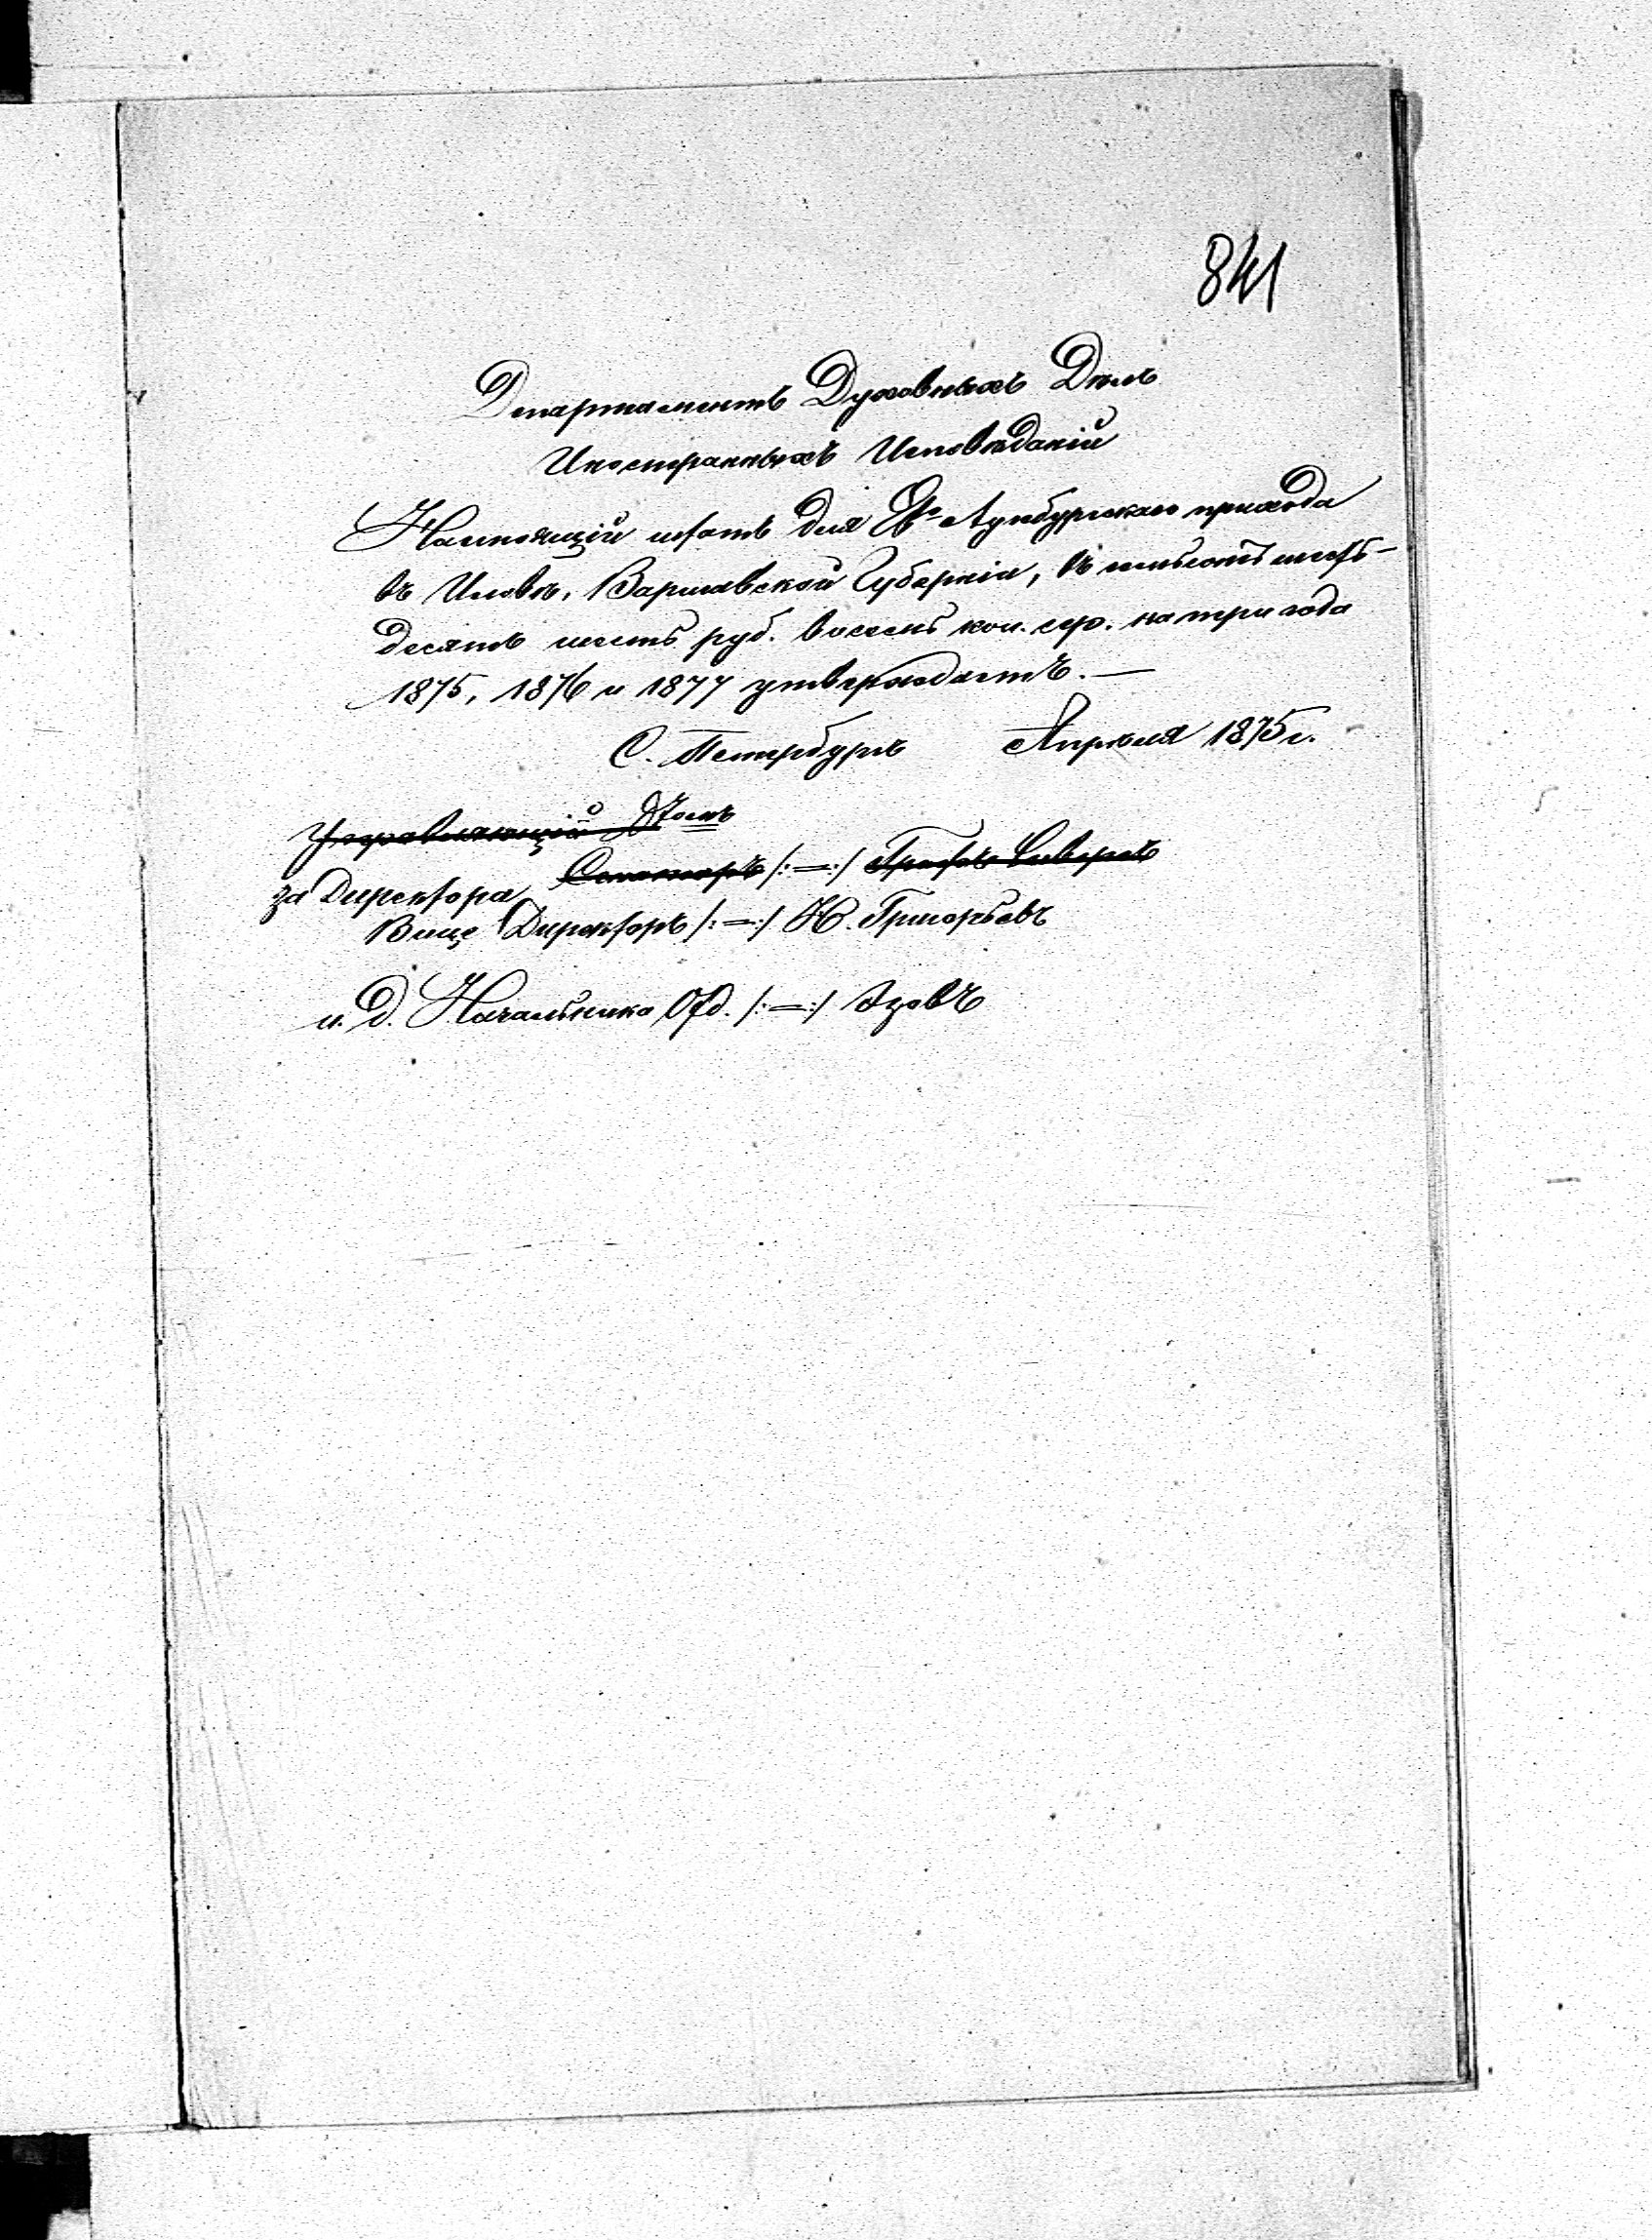 841
Департаментъ Духовныхъ Дѣлъ
Иностранныхъ Исповѣданій
Настоящій штатъ для Ев.- Аугсбургскаго прихода
въ Иловѣ, Варшавской Губерніи, въ семьсотъ шесть-
десятъ шесть руб. восемь коп. сер. на три года
1875, 1876 и 1877 утверждаетъ.—
С. Петербургъ Апрѣля 1875 г.
Управляющій
за Директора Сенаторъ /:—:/ Графъ Сиверсъ
Вице Директоръ /:—:/ Н. Григорьевъ
и. д. Начальника Отд. /:—:/